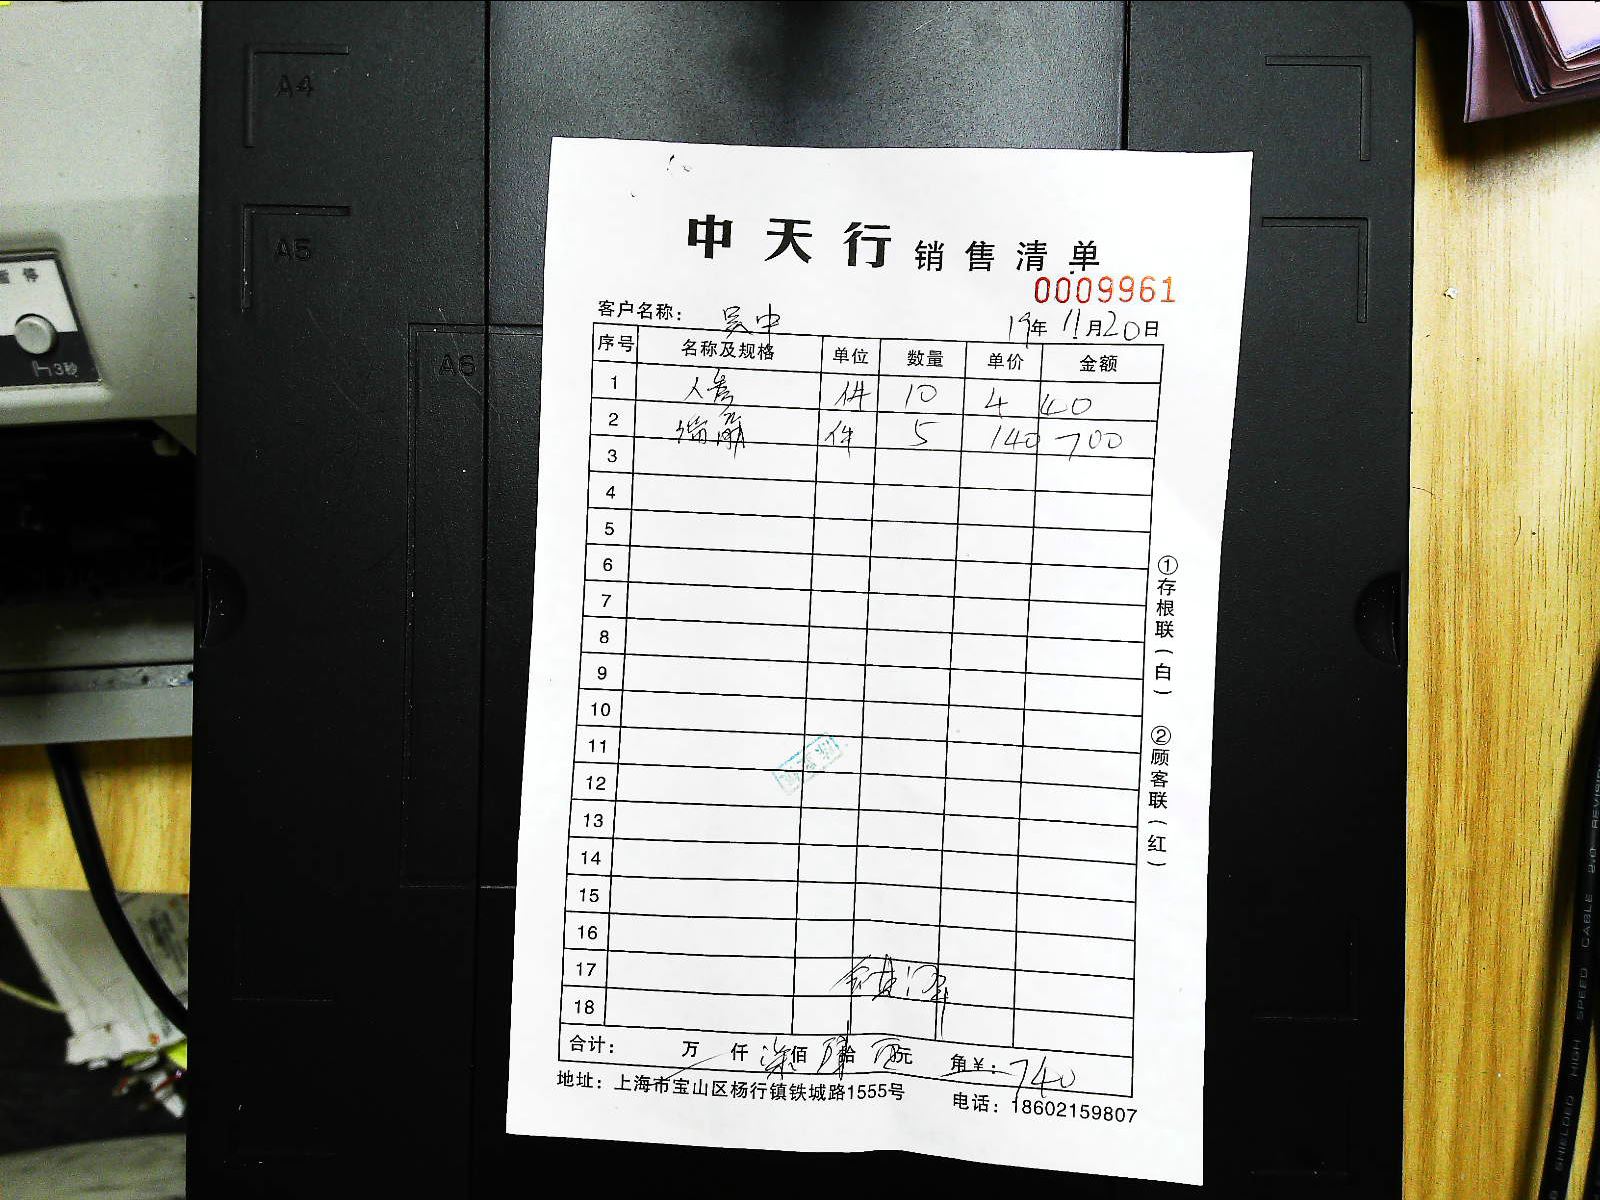 A4
A5
A6
停
3秒
中天行销售清单
0009961
客户名称： 吴中 19年11月20日
序号 名称及规格 单位 数量 单价 金额
1 件 10 4 40
2 件 5 140 700
3
4
5
6
7
8
9
10
11
12
13
14
15
16
17
18
合计： 万 仟 柒佰 肆拾 元 角￥：740
地址：上海市宝山区杨行镇铁城路1555号 电话：18602159807
①存根联（白） ②顾客联（红）
SHIELDED HIGH SPEED CABLE 2.0 REVISION